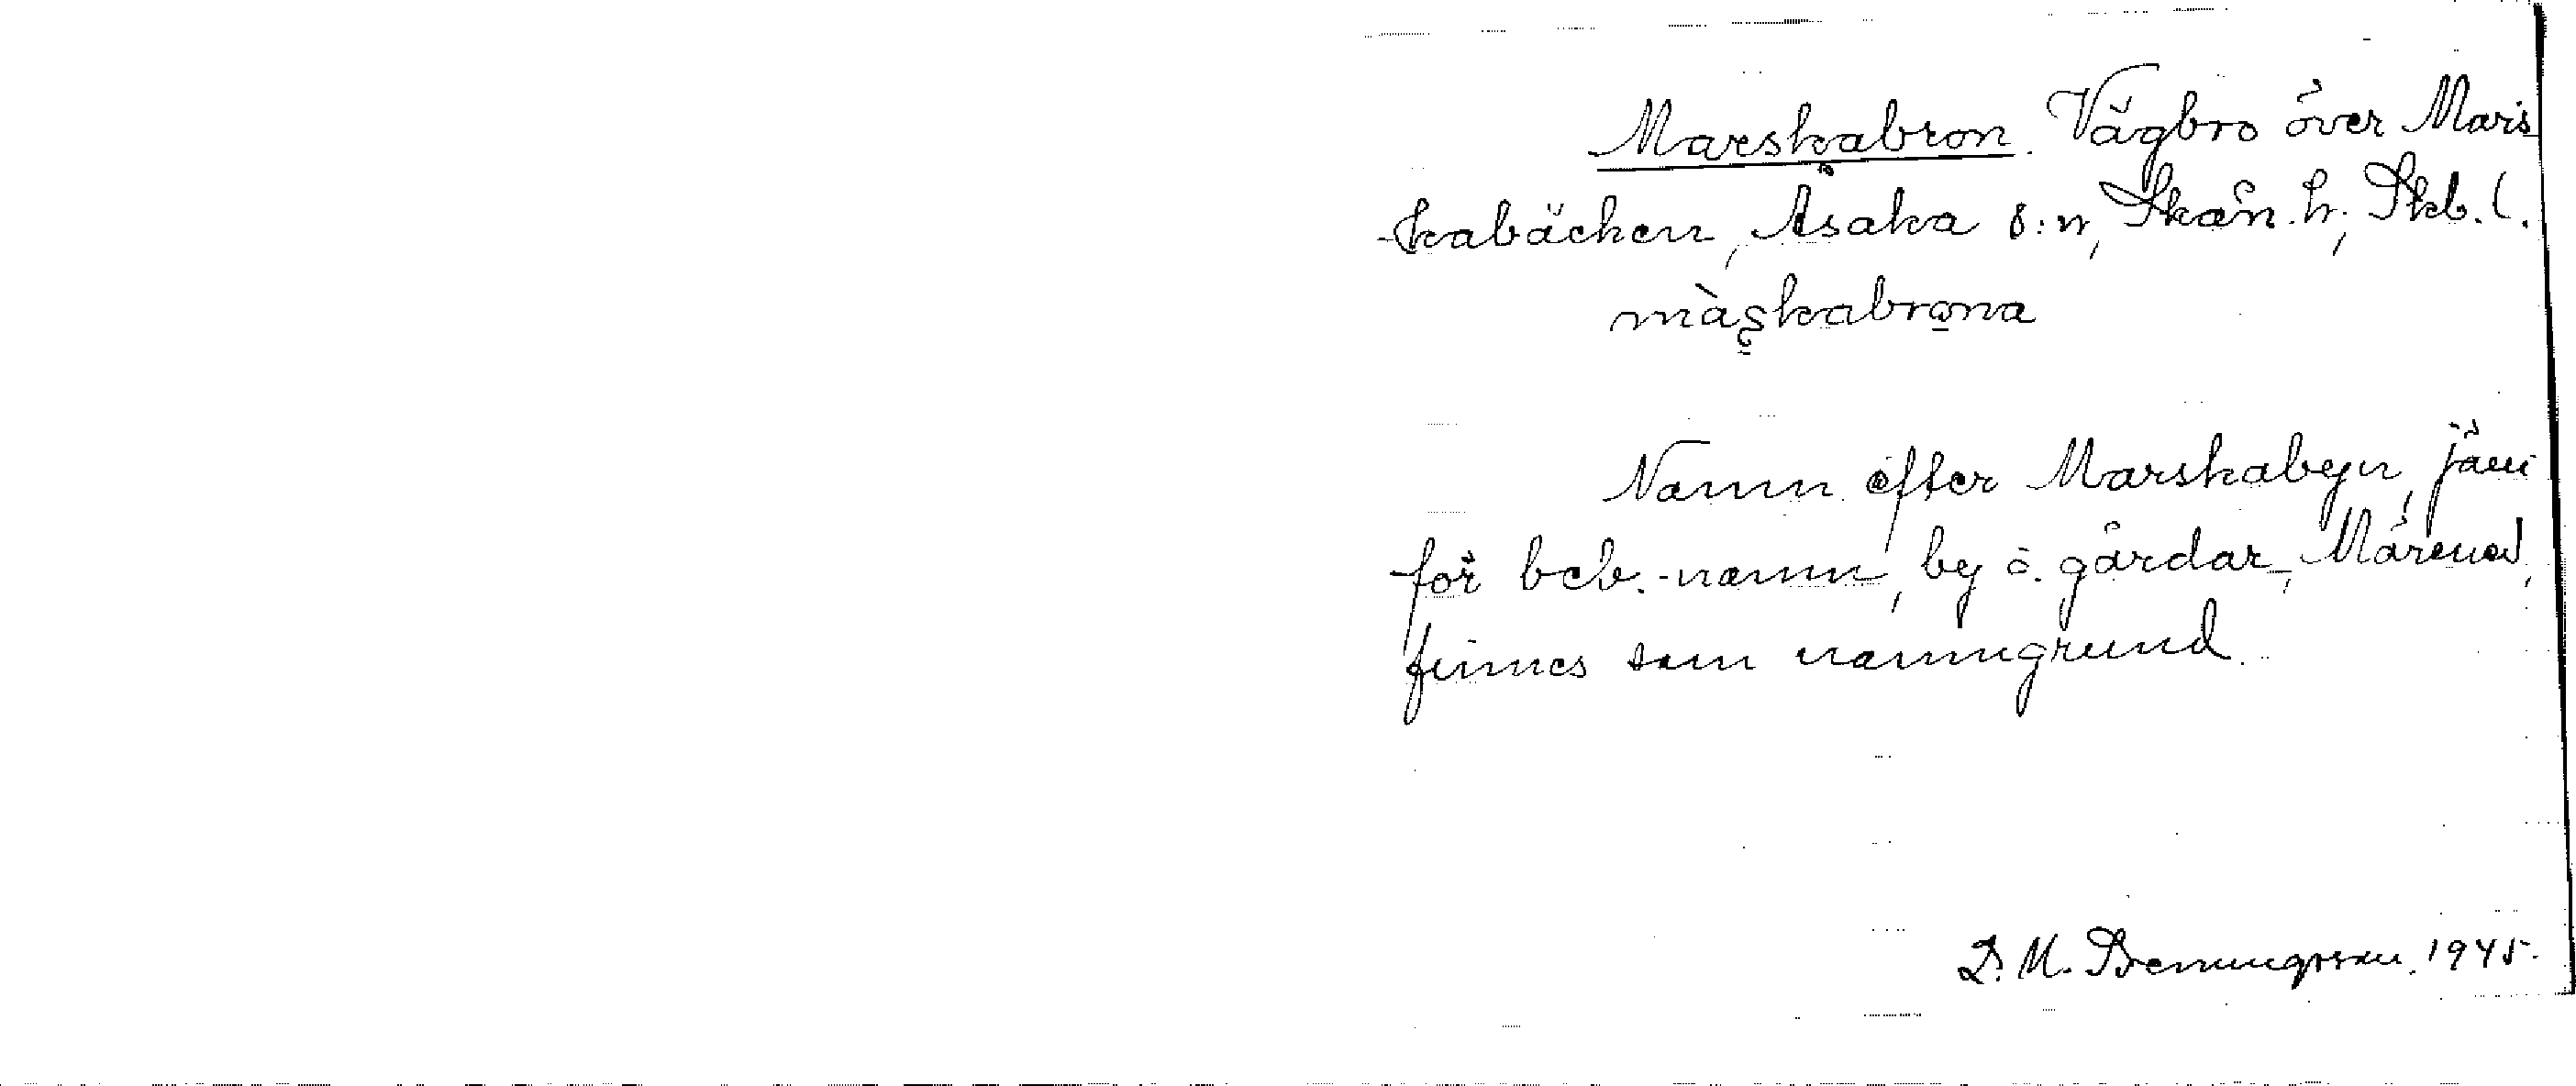 Marskabron. Vägbro över Mars
kabäcken, Åsaka s:n, Skån. h., Skb. l.
màs̨kabrωna
Namn efter Marskabyn, jäm
för beb.-namn, by o. gårdar, Marena,
finnes som namngrund.
D. M. Benningsson. 1945.